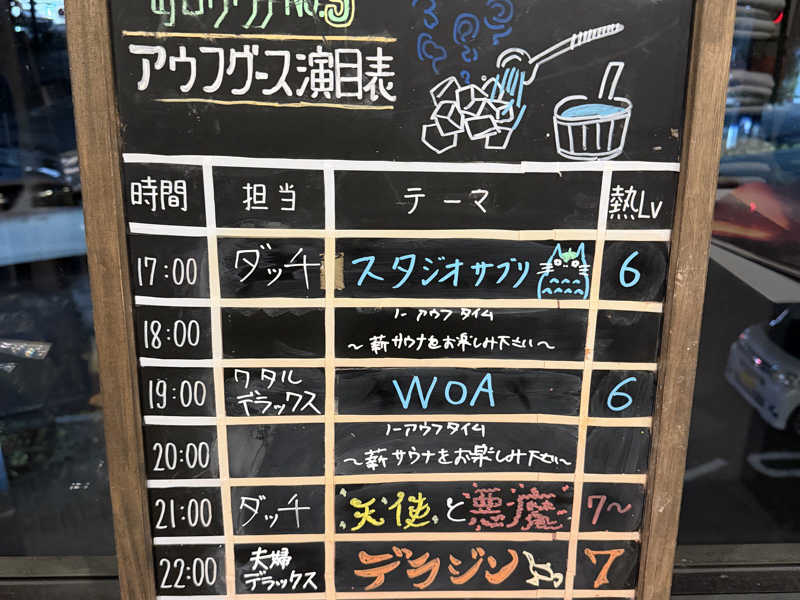 アウフグース演目表
時間 担当 テーマ 熱Lv
17:00 ダッチ スタジオサブリ 6
18:00 ノーアウフタイム
～薪サウナをお楽しみ下さい～
19:00 ワタル
デラックス WOA 6
20:00 ノーアウフタイム
～薪サウナをお楽しみ下さい～
21:00 ダッチ 天使と悪魔 7～
22:00 夫婦
デラックス デラジン 7